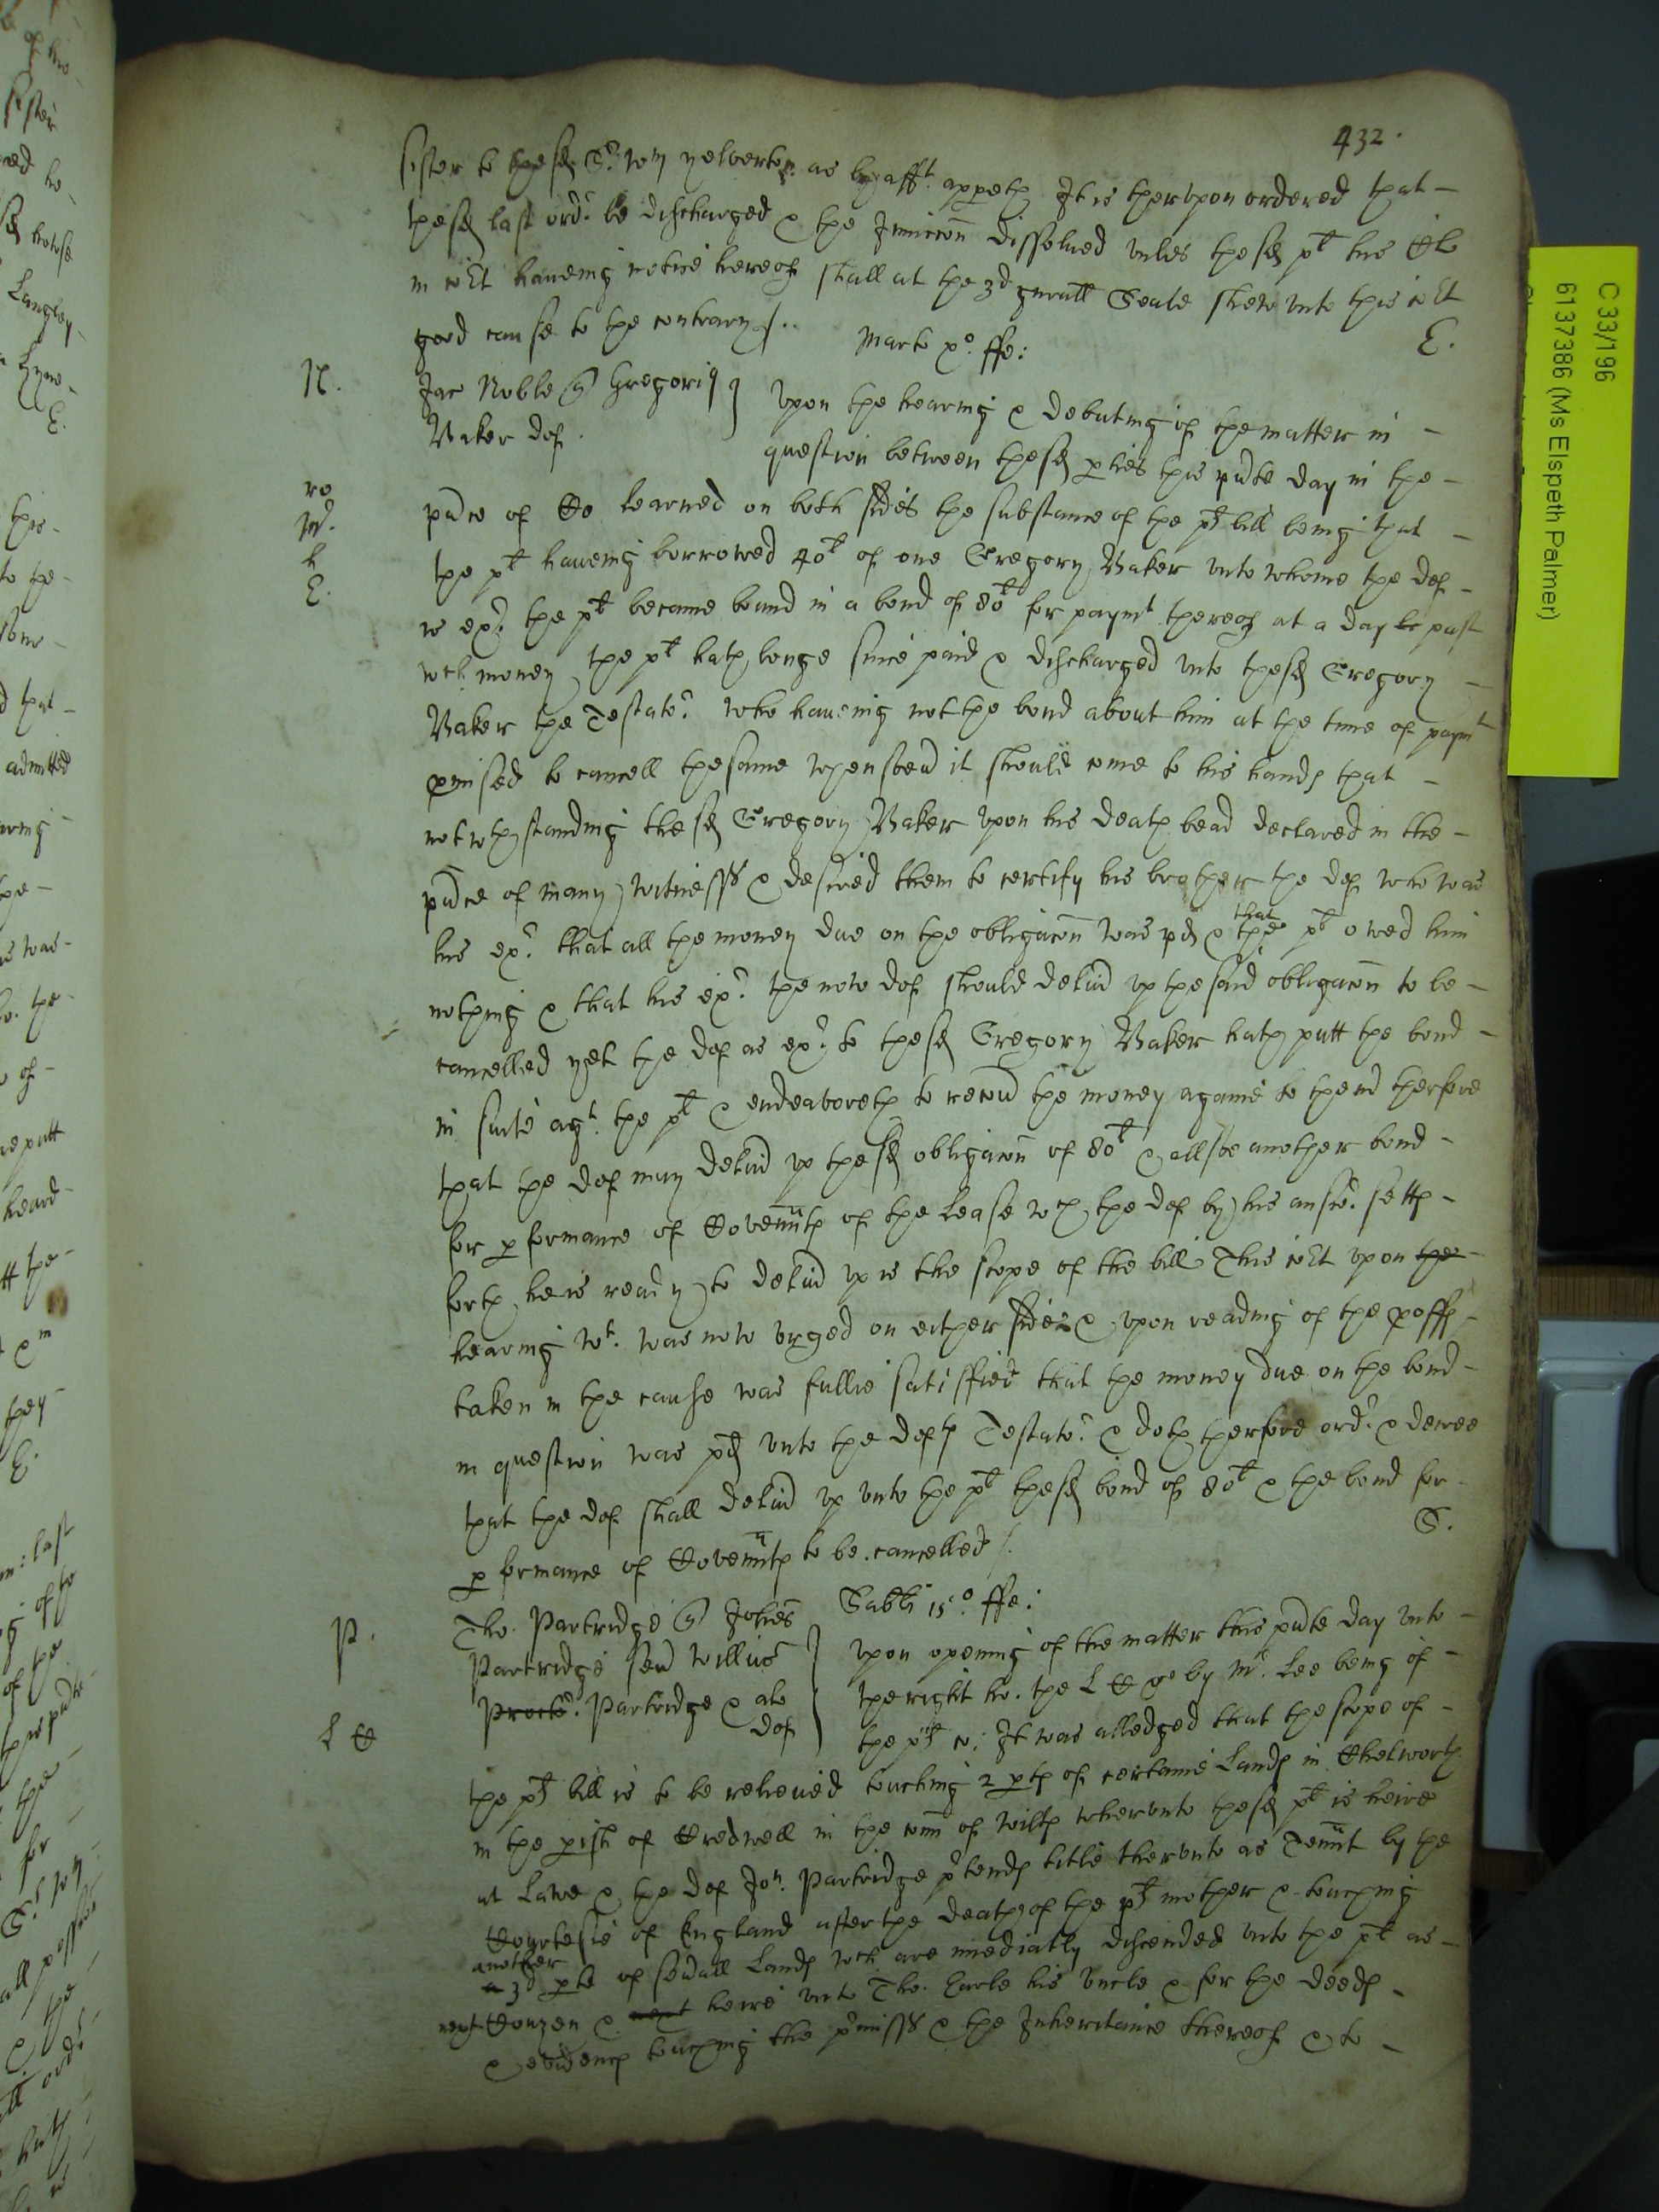 432.
sister to the sd Sr. Wm yelverton as by afft. appeth It is therupon ordered that
the sd last ordr. be discharged & the Iniuccon dissolved vnles the sd plt his Cle
in cort haveing notice hereof shall at the 3d gnrall Seale shew vnto this cort
good cause to the contrary /..
E.
Marte xo. ffe:
N.
Jac Noble Gregoriu
Baker def.
vpon the hearing & debating of the matter in
question between the sd pties this pnte day in the
ro
Mr.
h
E.
pnce of Co learned on both sides the substance of the plts bill being that
the plt haveing borrowed 40l of one Gregory Baker vnto whome the def
is exr. the plt became bound in a bond of 80l for paymt thereof at a day to past
wch money the plt hath longe since paid & discharged vnto the sd Gregory
Baker the Testator. who haveing not the bond about him at the time of paymt
pmised to cancell the same when soevr it should come to his hands that
notwthstanding the sd Gregory Baker vpon his death bead declared in the
pnce of many witnesses & desired them to certify his brother the def who was
his exr. that all the money due on the obligacon was pd & that the plt owed him
nothing & that his exr. the now def should delivr vp the said obligacon to be
cancelled yet the def as exr. to the sd Gregory Baker hath putt the bond
in suite agt. the plt & endeavoreth to recovr the money againe to thend therfore
that the def may delivr vp the sd obligacon of 80l & allsoe another bond
for pformance of Covennts of the lease wch the def by his answ. setth
forth he is ready to delivr vp is the scope of the bill This cort vpon the
hearing wt. was now vrged on either sides & vpon reading of the proffs
taken in the cause was fullie satisfied that the money due on the bond
in question was pd vnto the defts Testator. & doth therfore ordr. & decree
that the def shall delivr vp vnto the plt the sd bond of 80l & the bond for
pformance of Covennts to be cancelled /.
S.
Sabti 15o. ffe:
P.
L C
Tho. Partridge Johes
Partridge sen Willius
Procto. Partridge & als
def
vpon opening of the matter this pnte day vnto
the right ho. the L C by Mr. Lee being of
the plts co: It was alledged that the scope of
the plts bill is to be relieved touching 2 pts of certaine Lands in Chelworth
in the pish of Credwell in the com of Wilts whervnto the sd plt is heire
at Lawe & the def Jon. Partridge ptends title thervnto as Tennt by the
Courtesie of England after the death of the plts mother & touching
another
a 3d pte of sevall Lands wch are imediatly discended vnto the plt as
next Couzen & next heire vnto Tho. Earle his Vncle & for the deeds
& evidencs touching the pmisses & the Inheritance thereof & to
C 33/196
6137386 (Ms Elspeth Palmer)